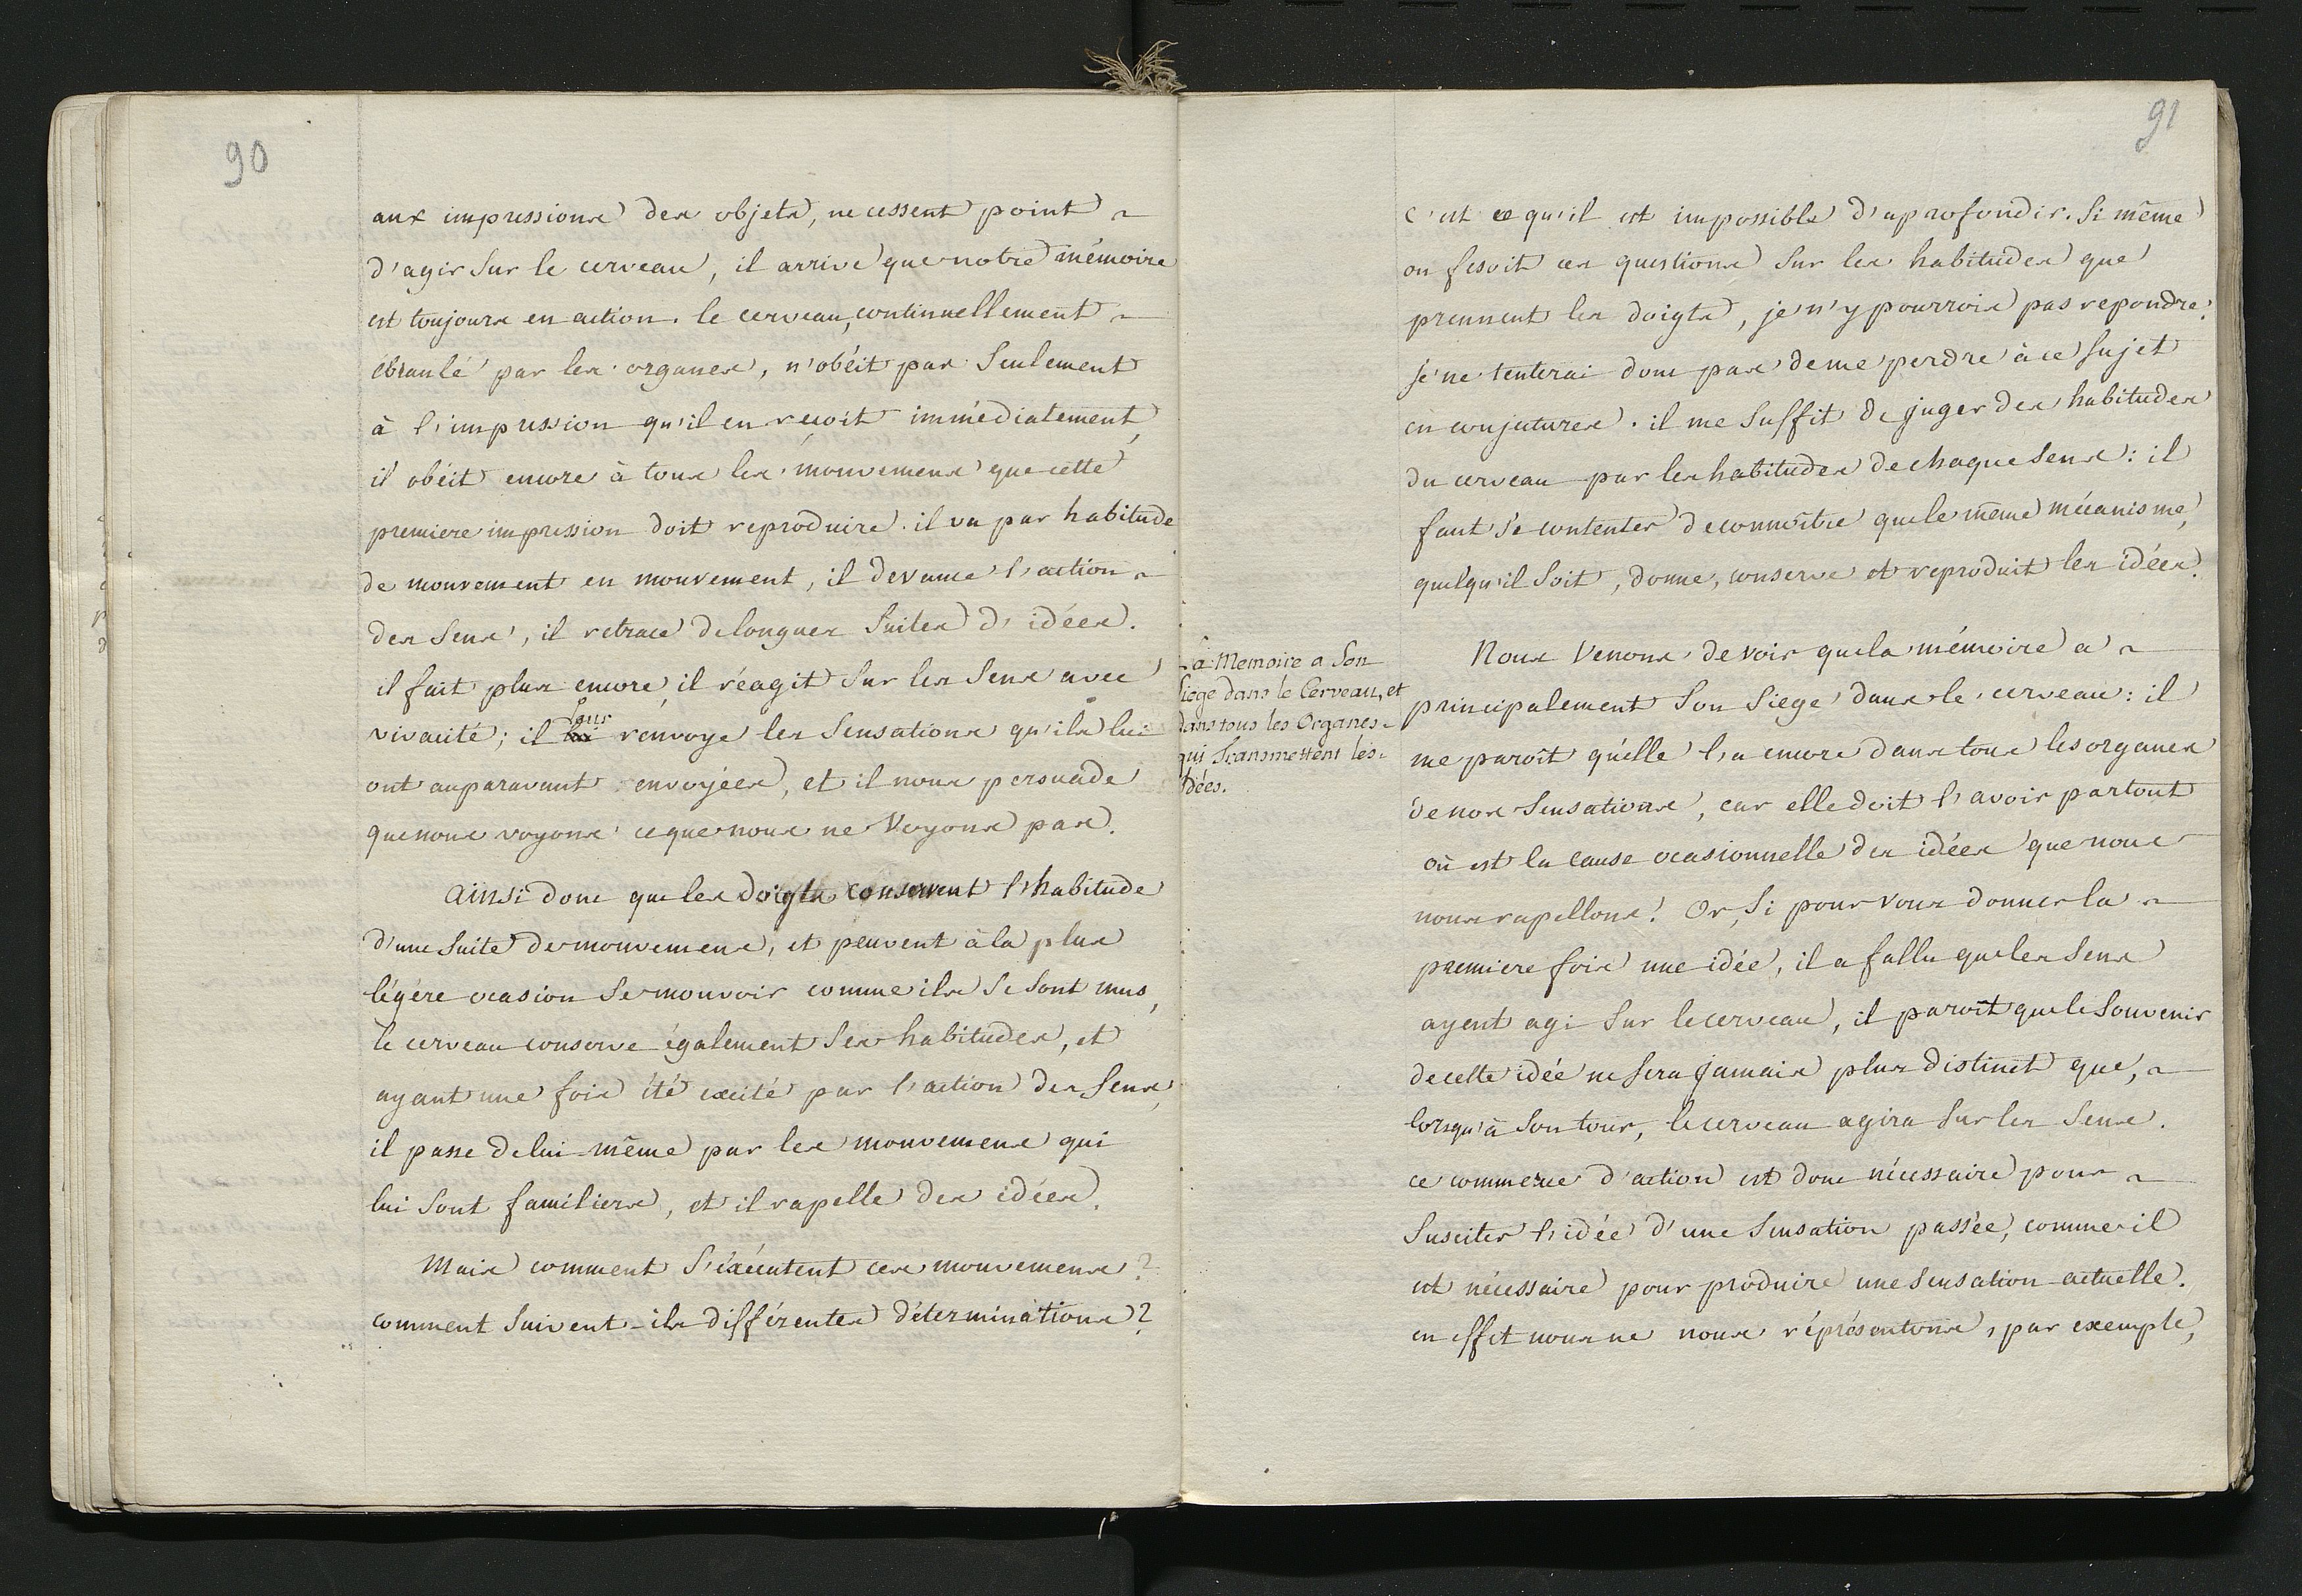 90
aux impressions des objets, ne cessent point
d'agir sur le cerveau, il arrive que notre mémoire
est toujours en action. le cerveau, continuellement
ébranlé par les organes, n'obéit pas seulement
à l'impression qu'il en reçoit immédiatement,
il obéit encore à tous les mouvemens que cette
premiere impression doit reproduire. il va par habitude
de mouvement en mouvement, il devance l'action
des sens, il retrace de longues suites d'idées.
il fait plus encore, il réagit sur les sens avec
vivacité; il leur renvoye les sensations qu'ils lui
ont auparavant envoyées, et il nous persuade
que nous voyons ce que nous ne voyons pas.
Ainsi donc que les doigts conservent l'habitude
d'une suite de mouvemens, et peuvent à la plus
légère ocasion se mouvoir comme ils se sont mus,
le cerveau conserve également ses habitudes, et
ayant une fois été excité par l'action des sens,
il passe de lui-même par les mouvemens qui
lui sont familiers, et il rapelle des idées.
Mais comment s'éxécutent ces mouvemens?
comment suivent-ils différentes déterminations?
91
c'est ce qu'il est impossible d'aprofondir. Si même
on fesoit ces questions sur les habitudes que
prennent les doigts, je n'y pourrois pas repondre.
je ne tenterai donc pas de me perdre à ce sujet
en conjectures. il me suffit de juger des habitudes
du cerveau par les habitudes de chaque sens: il
faut se contenter de connoître que le même mécanisme,
quelqu'il soit, donne, conserve et reproduit les idées.
La Memoire a Son
Siege dans le Cerveau, et
dans tous les Organes
qui transmettent les
Idées.
Nous venons de voir que la mémoire a
principalement son siege dans le cerveau: il
me paroît qu'elle l'a encore dans tous les organes
de nos sensations, car elle doit l'avoir partout
où est la cause ocasionnelle des idées que nous
nous rapellons. Or, Si pour vous donner la
premiere fois une idée, il a fallu que les sens
ayent agi sur le cerveau, il paroît que le souvenir
de cette idée ne sera jamais plus distinct que,
lorsqu'à son tour, le cerveau agira sur les sens.
ce commerce d'action est donc nécessaire pour
susciter l'idée d'une sensation passée, comme il
est nécessaire pour produire une sensation actuelle.
en effet nous ne nous réprésentons, par exemple,